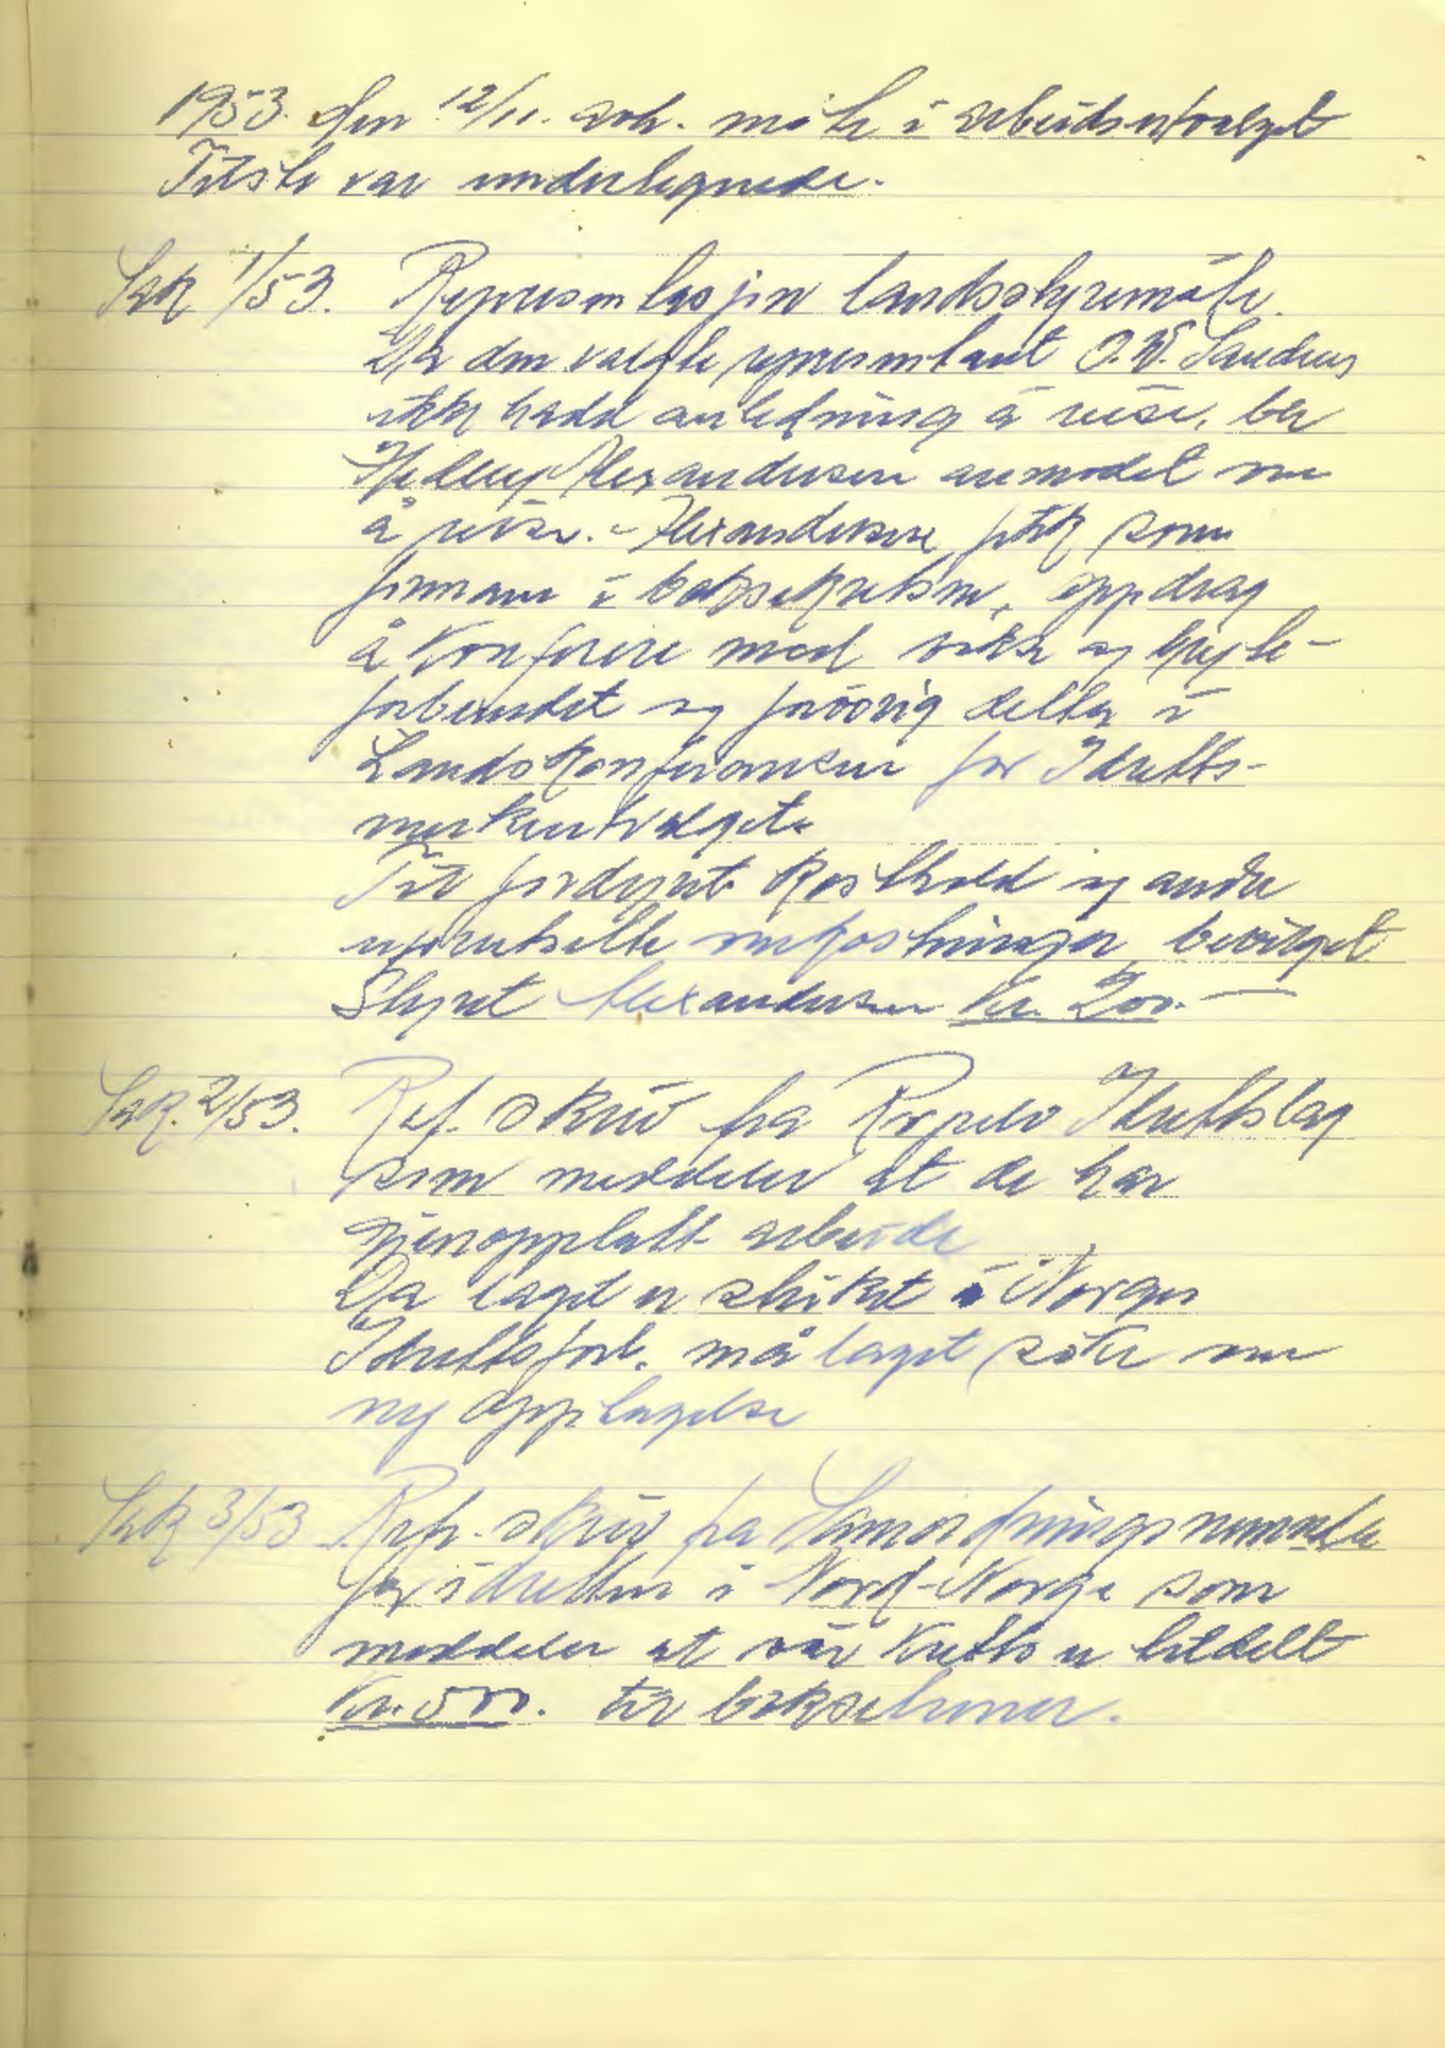 1953. den 12/11. avh. møte i arbeidsutvalget
Tilste var undertegnede.
Sak 1/53. Representasjon landsstyremøte.
Da den valgte representant O.W. Sandnes
ikke hadde anledning å reise, ble
Hedley Alexandersen anmodet om
å reise. - Alexandersen fikk som
formann i boksekretsen, oppdrag
å konferere med vekt og bryte-
forbundet og forövrig delta i
Landskonferansen for Idretts-
merkeutvalget.
Til fordyret kosthold og andre
uforutsette omkostninger, bevilget
Styret Alexandersen Kr. 200.-
Sak. 2/53. Ref. skriv fra Idrettslag
som meddeler at de har
gjenopptatt arbeide
Da laget er strøket i Norges
Idrettsforb. må laget søke om
ny opptagelse
Sak 3/53 Refr. skriv fra Samordningsnemnda
for idretten i Nord-Norge som
meddeler at vår krets er tildelt
Kr. 500. til boksetrener.